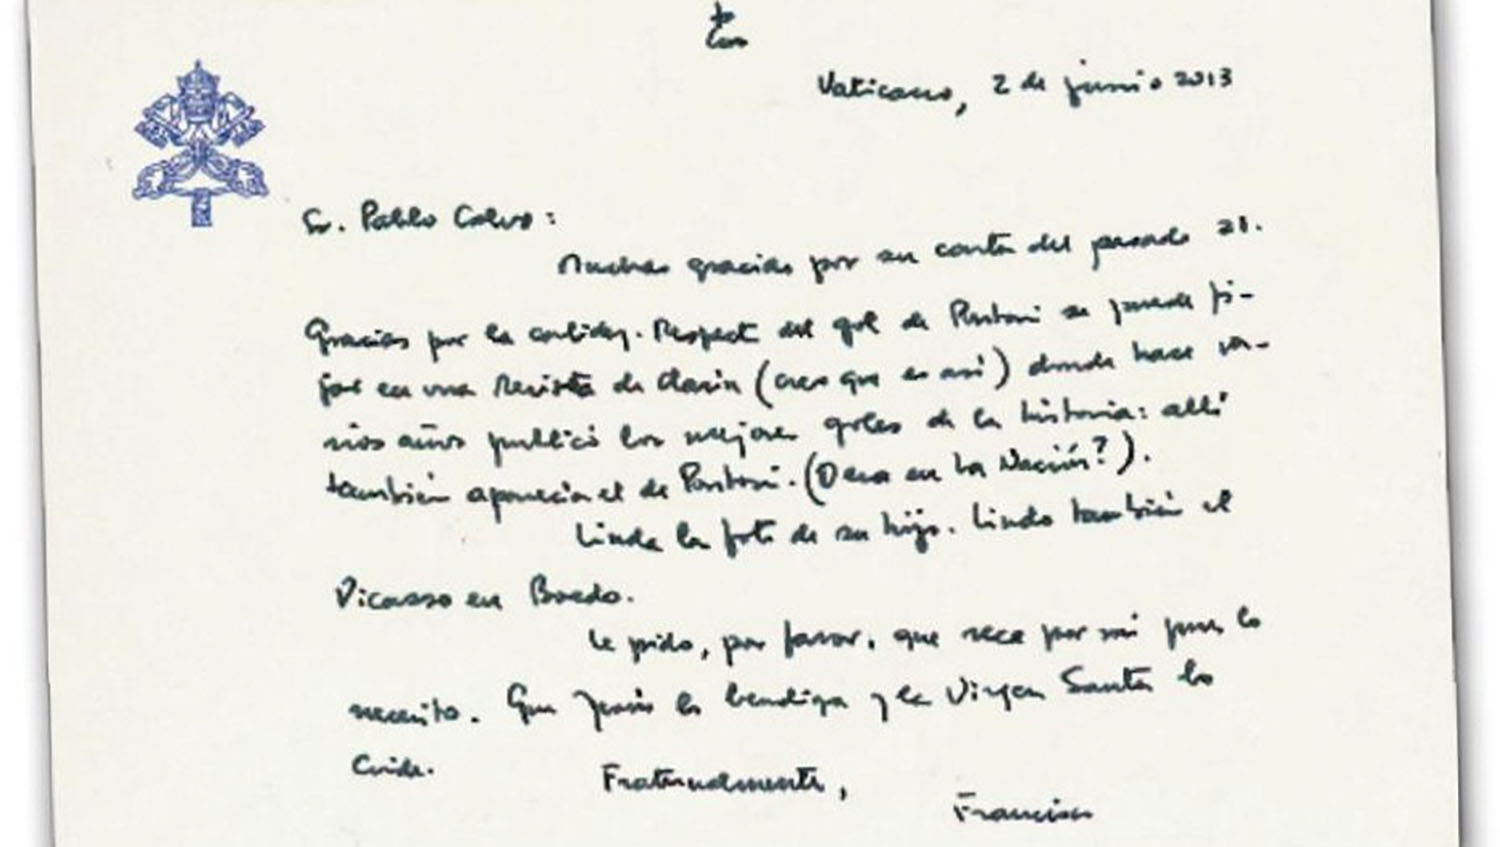 Vaticano, 2 de junio 2013
Sr. Pablo Calvo:
Muchas gracias por su carta del pasado 21.
Gracias por la calidez. Respecto del gol de Pontoni se puede fi-
jar en una Revista de Clarín (creo que es así) donde hace va-
rios años publicó los mejores goles de la historia: allí
también aparecía el de Pontoni. (O era en La Nación?).
Linda la foto de su hijo. Lindo también el
Picasso en Boedo.
Le pido, por favor, que rece por mí pues lo
necesito. Que Jesús lo bendiga y la Virgen Santa lo
cuide.
Fraternalmente,
Francisco